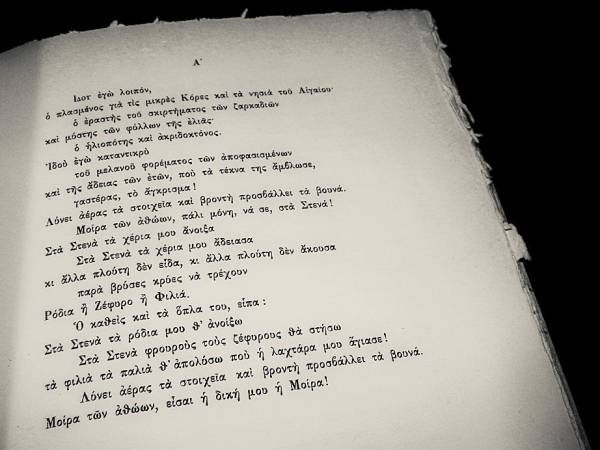 Α΄
ΙΔΟΥ ἐγὼ λοιπόν,
ὁ πλασμένος γιὰ τὶς μικρὲς Κόρες καὶ τὰ νησιὰ τοῦ Αἰγαίου·
ὁ ἐραστὴς τοῦ σκιρτήματος τῶν ζαρκαδιῶν
καὶ μύστης τῶν φύλλων τῆς ἐλιᾶς·
ὁ ἡλιοπότης καὶ ἀκριδοκτόνος.
Ἰδοὺ ἐγὼ καταντικρὺ
τοῦ μελανοῦ φορέματος τῶν ἀποφασισμένων
καὶ τῆς ἄδειας τῶν ἐτῶν, ποὺ τὰ τέκνα της ἄμβλωσε,
γαστέρας, τὸ ἄγκρισμα!
Λύνει ἀέρας τὰ στοιχεῖα καὶ βροντὴ προσβάλλει τὰ βουνά.
Μοίρα τῶν ἀθώων, πάλι μόνη, νά σε, στὰ Στενά!
Στὰ Στενὰ τὰ χέρια μου ἄνοιξα
Στὰ Στενὰ τὰ χέρια μου ἄδειασα
κι ἄλλα πλούτη δὲν εἶδα, κι ἄλλα πλούτη δὲν ἄκουσα
παρὰ βρύσες κρύες νὰ τρέχουν
Ρόδια ἢ Ζέφυρο ἢ Φιλιά.
Ὁ καθεὶς καὶ τὰ ὅπλα του, εἶπα:
Στὰ Στενὰ τὰ ρόδια μου θ' ἀνοίξω
Στὰ Στενὰ φρουροὺς τοὺς ζέφυρους θὰ στήσω
τὰ φιλιὰ τὰ παλιὰ θ' ἀπολύσω ποὺ ἡ λαχτάρα μου ἅγιασε!
Λύνει ἀέρας τὰ στοιχεῖα καὶ βροντὴ προσβάλλει τὰ βουνά.
Μοίρα τῶν ἀθώων, εἶσαι ἡ δική μου ἡ Μοίρα!